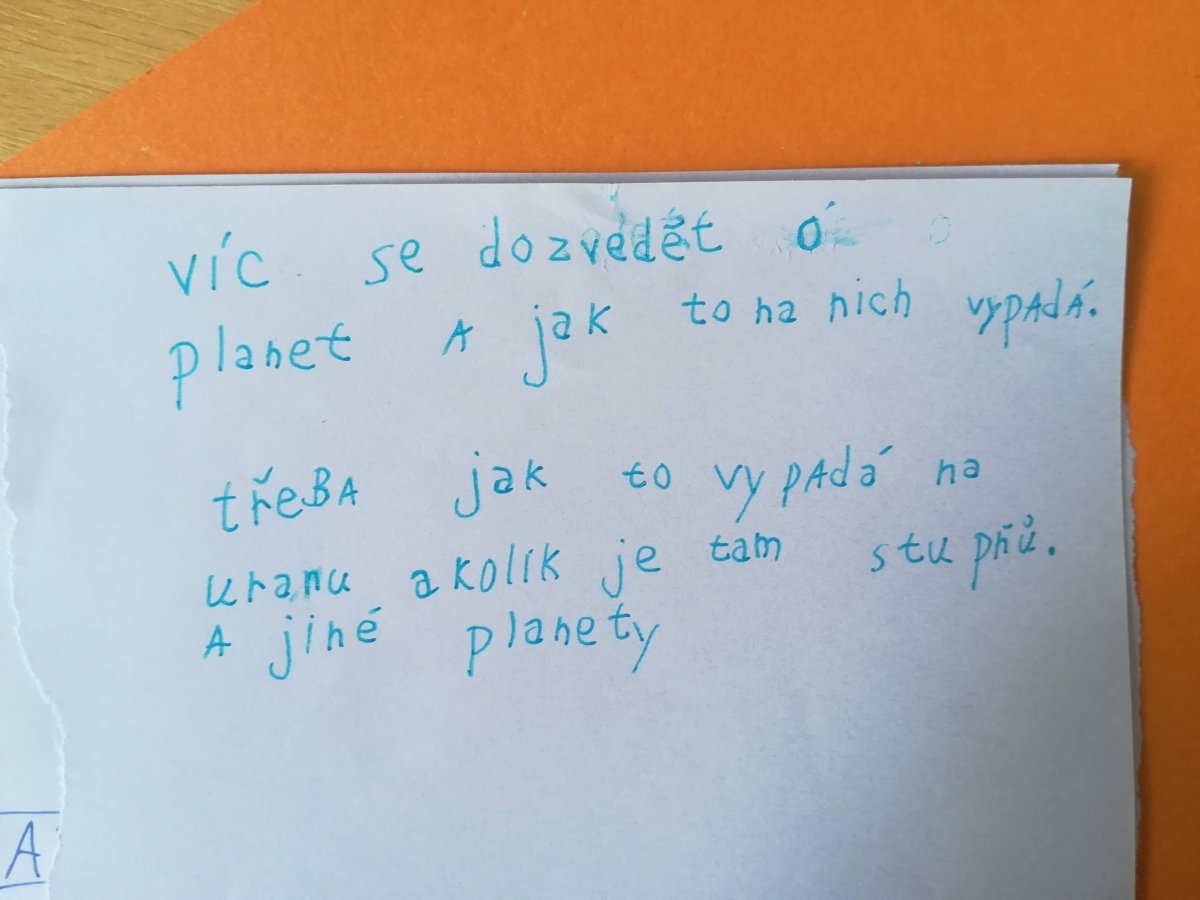 víc se dozvědět ó
planet A jak to na nich vypAdÁ.
třeBA jak to vypAdá na
uranu a kolik je tam stupňů.
A jiné planety
A